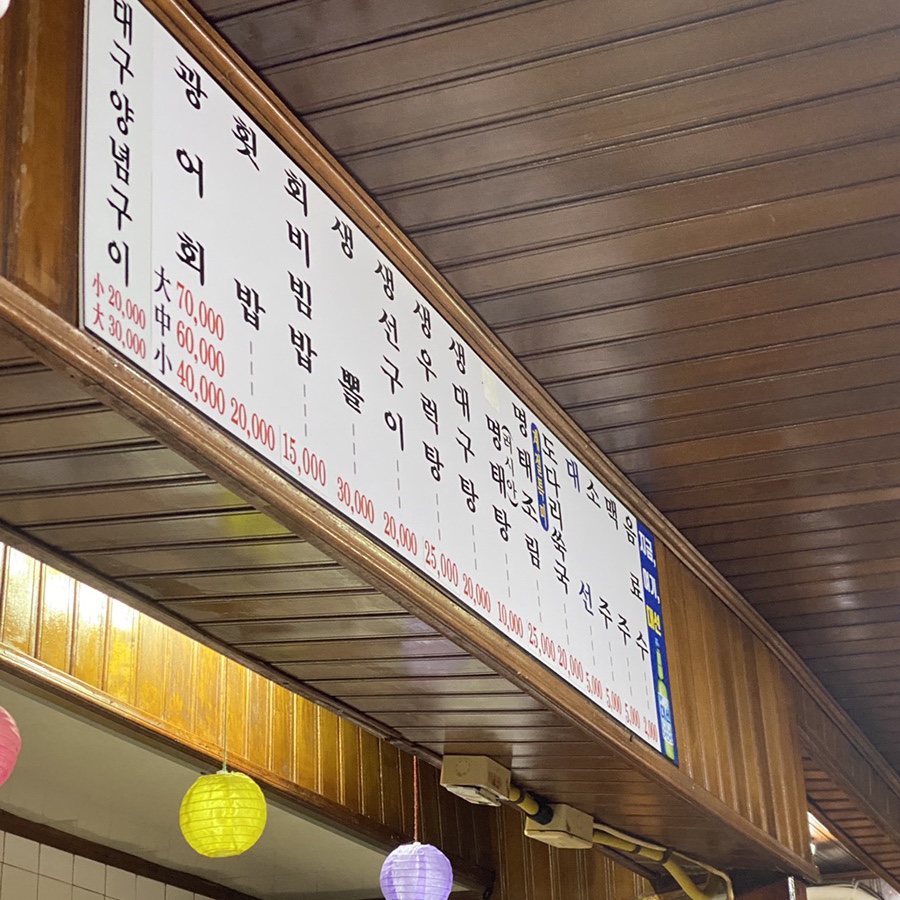 대구양념구이
小 20,000
大 30,000
광어회
大 70,000
中 60,000
小 40,000
횟밥
20,000
회비빔밥
15,000
생뽈
30,000
생선구이
20,000
생우럭탕
25,000
생대구탕
20,000
명태탕
(러시안)
10,000
명태조림
25,000
도다리쑥국
20,000
대선
5,000
소주
5,000
맥주
5,000
음료수
2,000